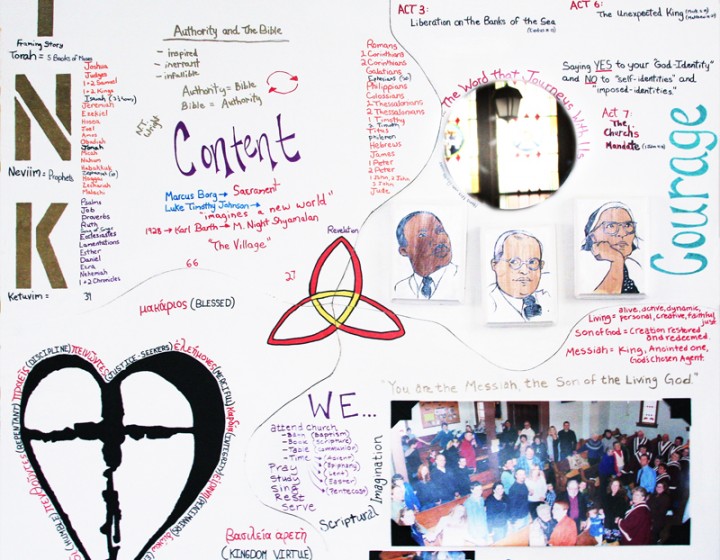 I
N
K
Framing Story
Torah = 5 Books of Moses
Joshua
Judges
1+2 Samuel
1+2 Kings
Isaiah
Jeremiah
Ezekiel
Hosea
Joel
Amos
Obadiah
Jonah
Micah
Nahum
Habakkuk
Zephaniah
Haggai
Zechariah
Malachi
Neviim = Prophets
Psalms
Job
Proverbs
Ruth
Song of Songs
Ecclesiastes
Lamentations
Esther
Daniel
Ezra
Nehemiah
1+2 Chronicles
Ketuvim =
39
Authority and The Bible
- inspired
- inerrant
- infallible
Authority = Bible
Bible = Authority
N.T. Wright
Content
Marcus Borg → Sacrament
Luke Timothy Johnson →
"imagines a new world"
1928 → Karl Barth → M. Night Shyamalan
"The Village"
66
27
Romans
1 Corinthians
2 Corinthians
Galatians
Ephesians
Philippians
Colossians
1 Thessalonians
2 Thessalonians
1 Timothy
2 Timothy
Titus
Philemon
Hebrews
James
1 Peter
2 Peter
1 John, 2 John
3 John
Jude
Revelation
ACT 3:
Liberation on the Banks of the Sea
ACT 6:
The Unexpected King
Saying YES to your "God-Identity"
and NO to "self-identities" and
"imposed-identities."
The Word that Journeys With Us
Act 7:
The
Church's
Mandate
Courage
μακάριος (BLESSED)
alive, active, dynamic,
Living = personal, creative, faithful,
just
Son of God = Creation restored
and redeemed.
Messiah = King, Anointed one,
God's Chosen Agent.
"You are the Messiah, the Son of the Living God."
(DEPENDANT) πραεῖς (DISCIPLINE) πεινῶντες (JUSTICE-SEEKERS) ἐλεήμονες (MERCIFUL) καρδίᾳ (INTEGRITY)
(HUMBLE)
WE...
attend church
- Born (baptism)
- Book (scripture)
- Table (communion)
- Time → (Advent)
(Epiphany)
(Lent)
(Easter)
(Pentecost)
Pray
Study
Sing
Rest
Serve
Scriptural Imagination
βασιλεία αρετή
(KINGDOM VIRTUE)